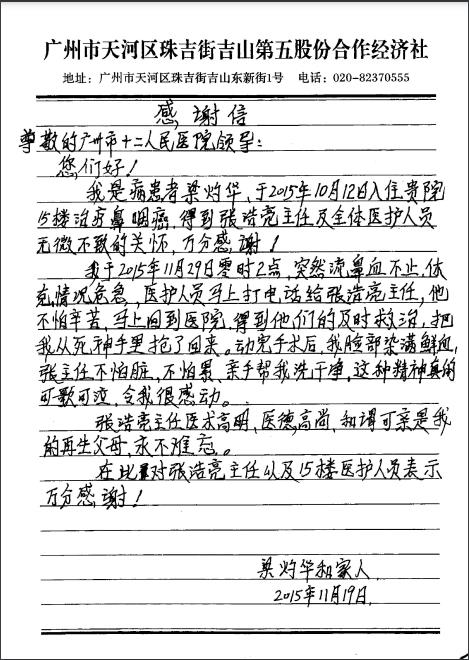 广州市天河区珠吉街吉山第五股份合作经济社
地址：广州市天河区珠吉街吉山东新街1号 电话：020-82370555
感谢信
尊敬的广州市十二人民医院领导：
您们好！
我是病患者梁灼华，于2015年10月12日入住贵院
15楼治疗鼻咽癌，得到张浩亮主任及全体医护人员
无微不致的关怀，万分感谢！
我于2015年11月29日零时2点，突然流鼻血不止，休
克，情况危急，医护人员马上打电话给张浩亮主任，他
不怕辛苦，马上回到医院，得到他们的及时救治，把
我从死神手里抢了回来。动完手术后，我脸部染满鲜血，
张主任不怕脏，不怕累，亲手帮我洗干净，这种精神真的
可歌可泣，令我很感动。
张浩亮主任医术高明，医德高尚，和谓可亲是我
的再生父母，永不难忘。
在此对张浩亮主任以及15楼医护人员表示
万分感谢！
梁灼华和家人
2015年11月19日